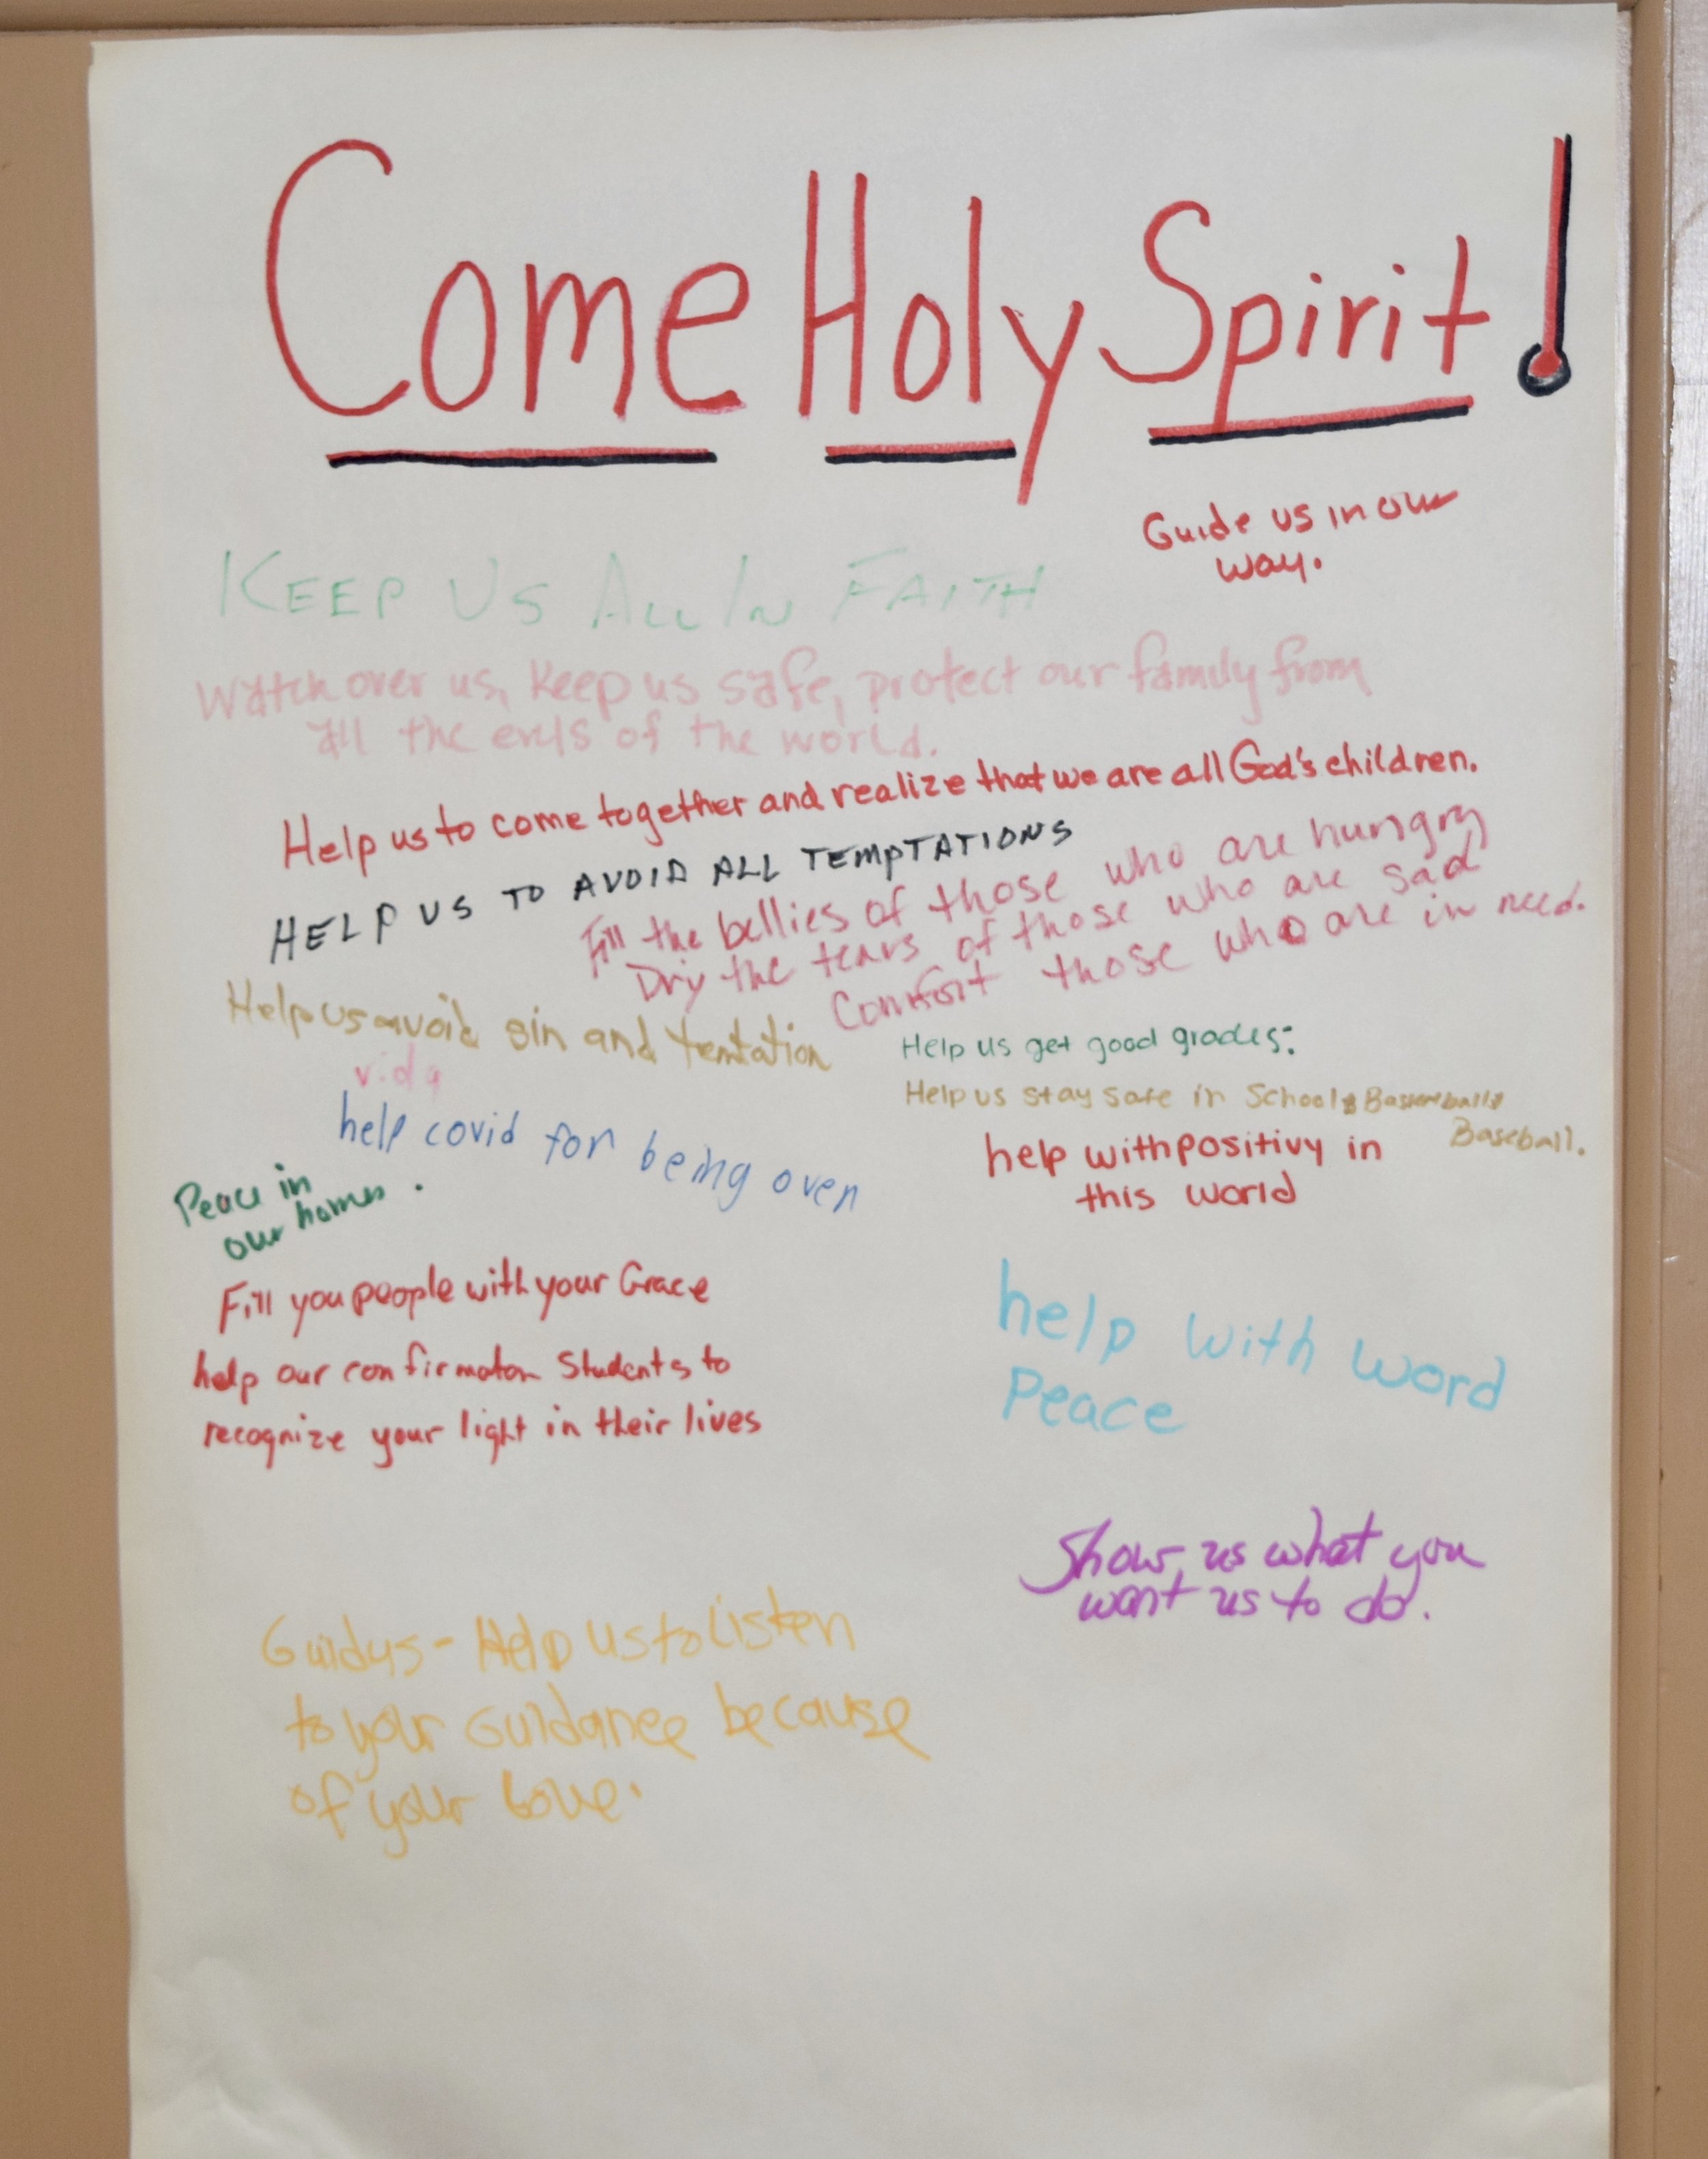 Come Holy Spirit!
Guide us in our
way.
KEEP US ALL IN FAITH
Watch over us, keep us safe, protect our family from
all the evils of the world.
Help us to come together and realize that we are all God's children.
HELP US TO AVOID ALL TEMPTATIONS
Fill the bellies of those who are hungry
Dry the tears of those who are sad
Comfort those who are in need.
Help us avoid sin and temtation
vida
Help us get good grades:
Help us stay safe in School, Basketball,
Baseball.
help covid for being oven
help with positivy in
this world
Peace in
our homes.
Fill you people with your Grace
help our confirmaton students to
recognize your light in their lives
help with word
Peace
Show us what you
want us to do.
Guidus - Help us to Listen
to your Guidance because
of your love.